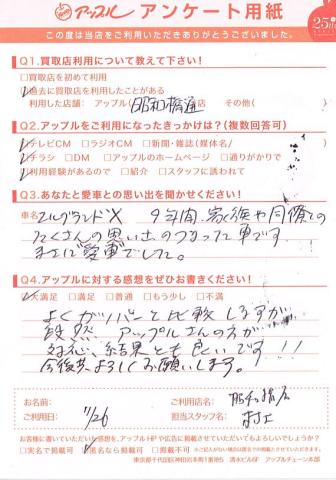 アップル アンケート用紙
この度は当店をご利用いただきありがとうございました。
25th
Q1.買取店利用について教えて下さい!
□買取店を初めて利用
□過去に買取店を利用したことがある
利用した店舗: アップル 昭和橋通 店 その他( )
Q2.アップルをご利用になったきっかけは?(複数回答可)
□テレビCM □ラジオCM □新聞・雑誌(媒体名/ )
□チラシ □DM □アップルのホームページ □通りがかりで
□利用経験があるので □紹介 □スタッフに誘われて
Q3.あなたと愛車との思い出を聞かせください!
車名 エルグランドX 9年間、家族や同僚との
たくさんの思い出のつまった車です
まさに愛車でした。
Q4.アップルに対する感想をぜひお書きください!
□大満足 □満足 □普通 □もう少し □不満
よくガリバーと比較しますが
段然 アップルさんの方が
対応、結果とも良いです!!!
今後共よろしくお願いします。
お名前:
ご利用店名: 昭和橋店
ご利用日: 7/26
担当スタッフ名: 村上
お客様に書いていただいた感想を、アップルHPや広告に掲載させていただいてもよろしいでしょうか?
□実名で掲載可 □匿名なら掲載可 □掲載不可
東京都千代田区神田岩本町1番地5 清水ビル6F アップルチェーン本部